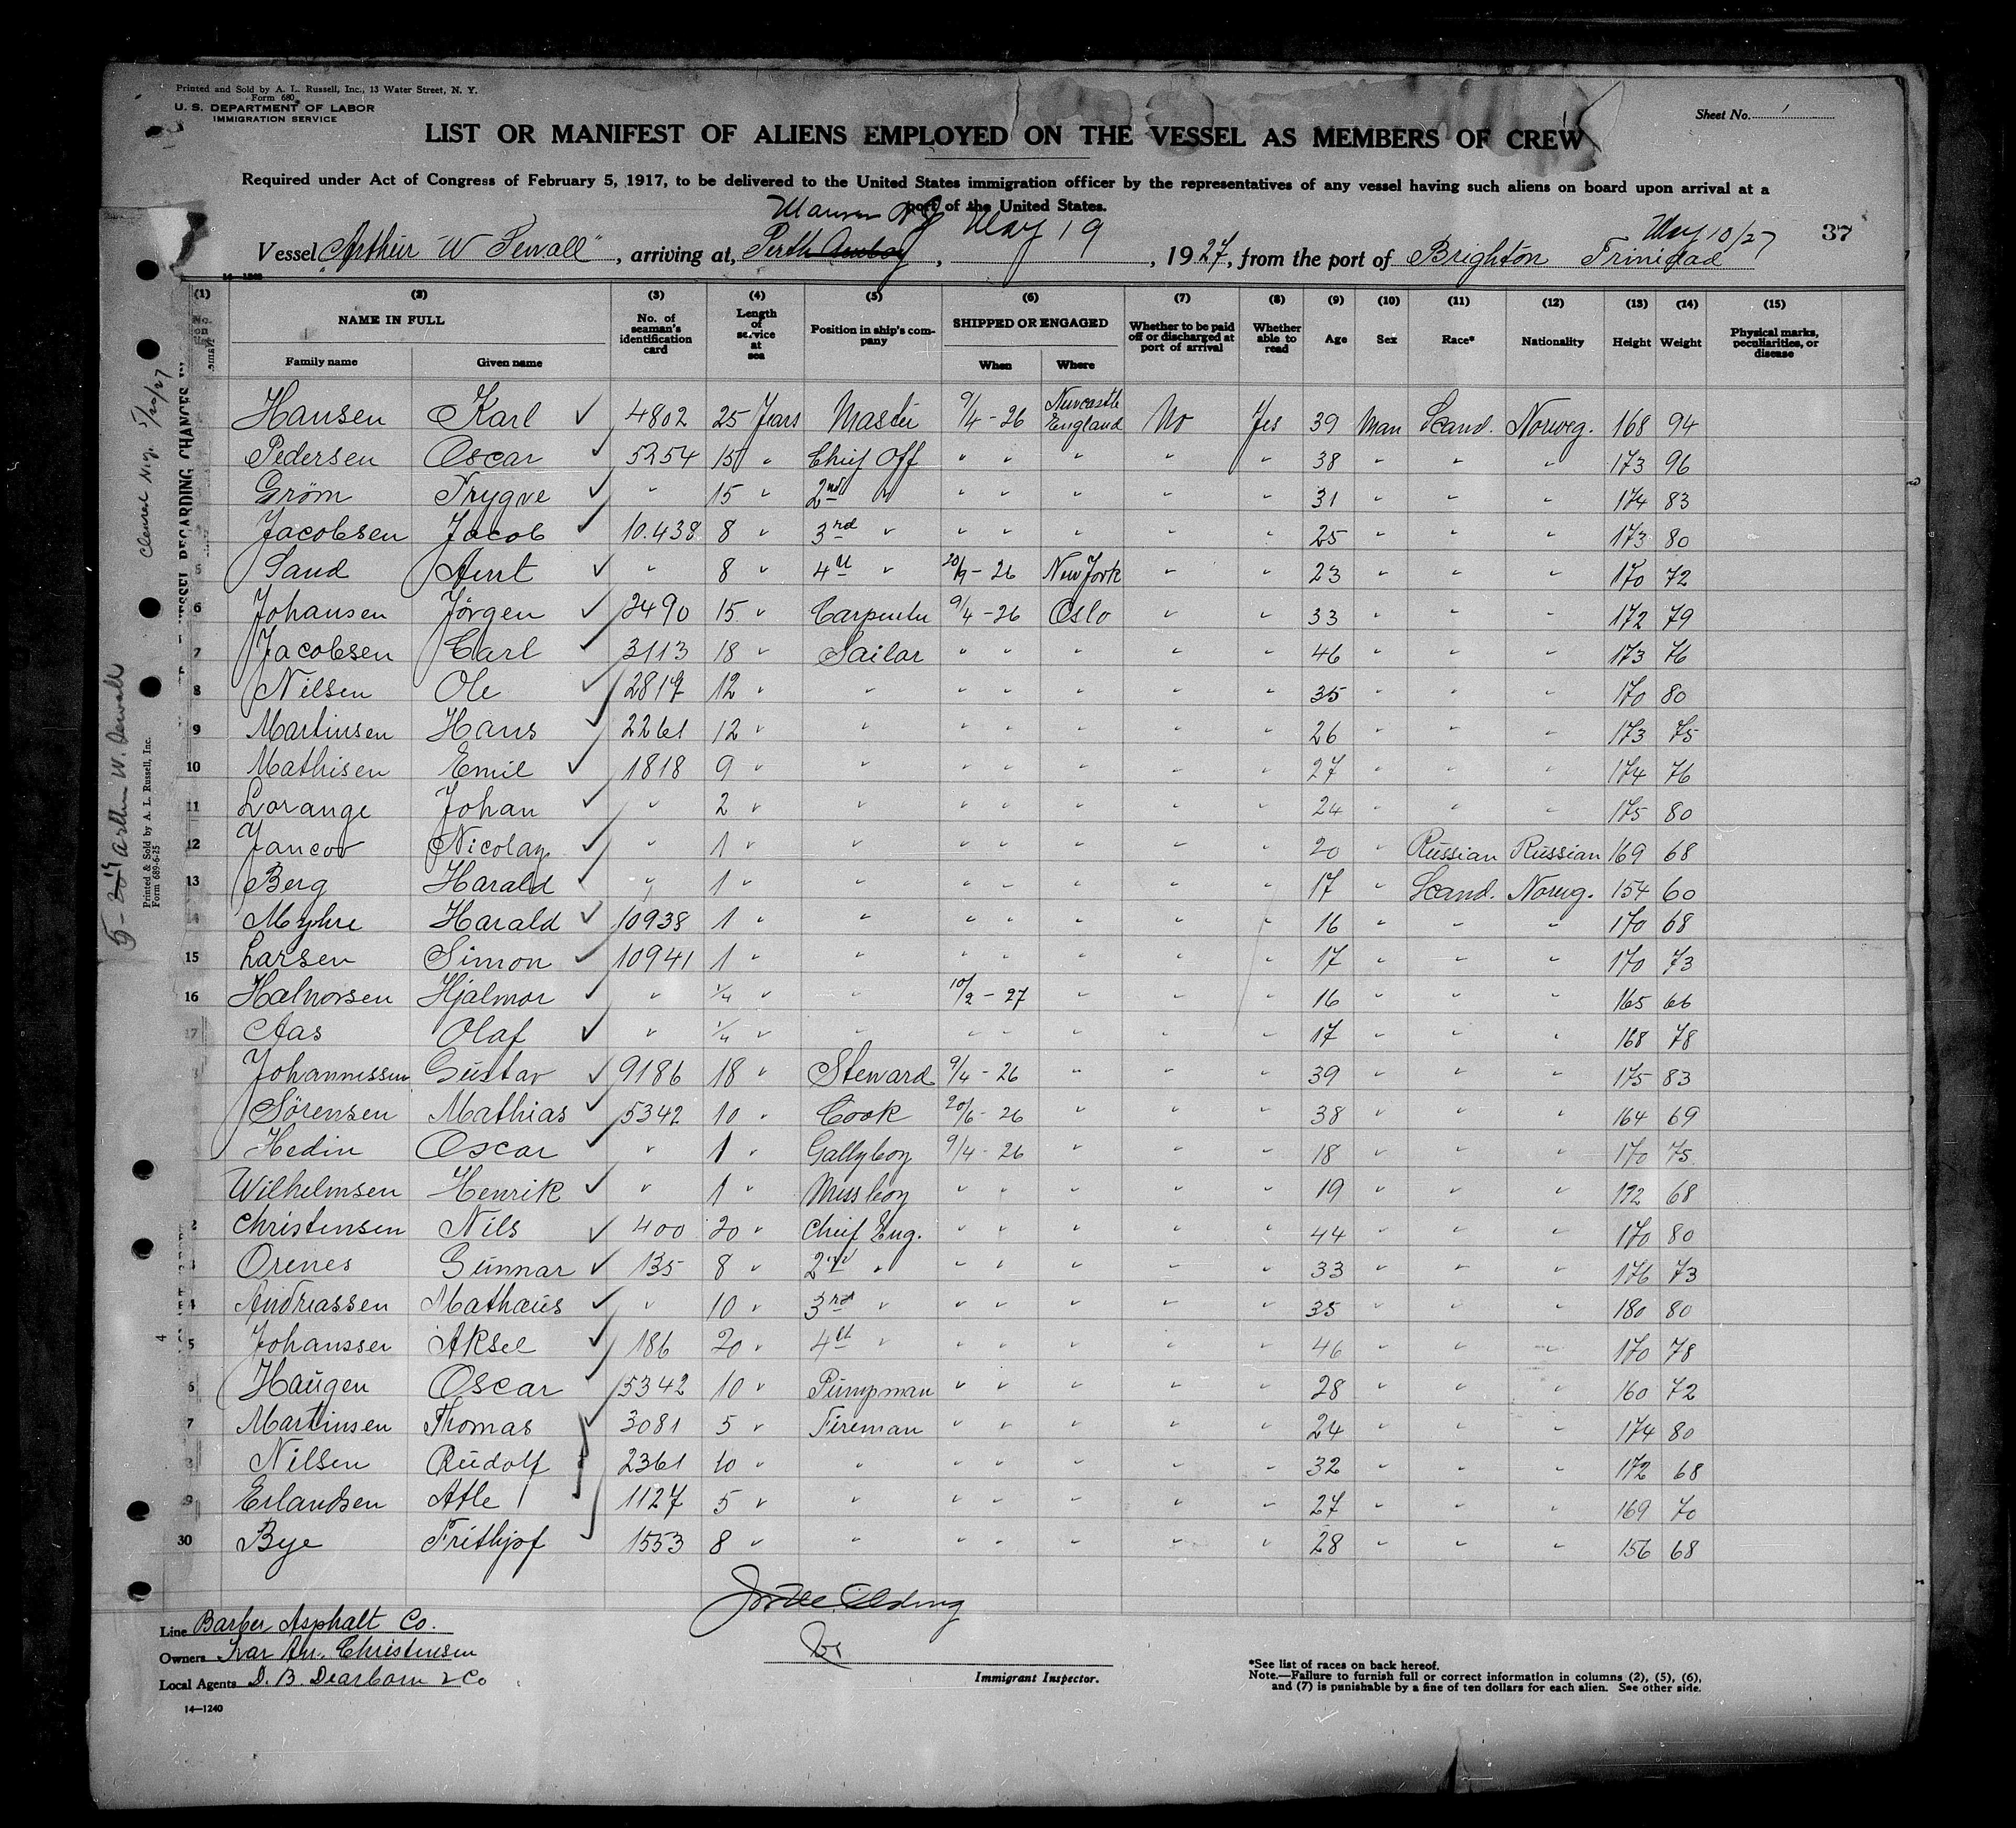 Printed and Sold by A. L. Russell, Inc., 13 Water Street, N. Y.
Form 680
U. S. DEPARTMENT OF LABOR
IMMIGRATION SERVICE
Sheet No. 1
LIST OR MANIFEST OF ALIENS EMPLOYED ON THE VESSEL AS MEMBERS OF CREW
Required under Act of Congress of February 5, 1917, to be delivered to the United States immigration officer by the representatives of any vessel having such aliens on board upon arrival at a
port of the United States.
Vessel "Arthur W Sewall", arriving at, Perth Amboy, May 19, 1927, from the port of Brighton Trinidad May 10/27
37
14-1240
(1) (2) (3) (4) (5) (6) (7) (8) (9) (10) (11) (12) (13) (14) (15)
No. on NAME IN FULL No. of seaman's identification card Length of service at sea Position in ship's company SHIPPED OR ENGAGED Whether to be paid off or discharged at port of arrival Whether able to read Age Sex Race* Nationality Height Weight Physical marks, peculiarities, or disease
Family name Given name When Where
Hansen Karl ✓ 4802 25 Years Master 9/4-26 Newcastle England No Yes 39 Man Scand. Norweg. 168 94
Pedersen Oscar ✓ 5254 15 " Chief Off " " " " " 38 " " " 173 96
Grøm Trygve ✓ " 15 " 2nd " " " " " " 31 " " " 174 83
Jacobsen Jacob ✓ 10.438 8 " 3rd " " " " " " 25 " " " 173 80
5 Sand Arnt ✓ " 8 " 4th " 20/9-26 New York " " 23 " " " 170 72
6 Johansen Jörgen ✓ 2490 15 " Carpenter 9/4-26 Oslo " " 33 " " " 172 79
7 Jacobsen Carl ✓ 3113 18 " Sailor " " " " " 46 " " " 173 76
8 Nilsen Ole ✓ 2817 12 " " " " " " " 35 " " " 170 80
9 Martinsen Hans ✓ 2261 12 " " " " " " " 26 " " " 173 75
10 Mathisen Emil ✓ 1818 9 " " " " " " " 27 " " " 174 76
11 Lorange Johan ✓ " 2 " " " " " " " 24 " " " 175 80
12 Jancov Nicolay ✓ " 1 " " " " " " " 20 " Russian Russian 169 68
13 Berg Harald ✓ " 1 " " " " " " " 17 " Scand. Norwg. 154 60
14 Myhre Harald ✓ 10938 1 " " " " " " " 16 " " " 170 68
15 Larsen Simon ✓ 10941 1 " " " " " " " 17 " " " 170 73
16 Halvorsen Hjalmar ✓ " 1/4 " " 10/2-27 " " " 16 " " " 165 66
17 Aas Olaf ✓ " 1/4 " " " " " " " 17 " " " 168 78
Johannessen Gustav ✓ 9186 18 " Steward 9/4-26 " " " 39 " " " 175 83
Sørensen Mathias ✓ 5342 10 " Cook 20/6-26 " " " 38 " " " 164 69
Hedin Oscar ✓ " 1 " Gallyboy 9/4-26 " " " 18 " " " 170 75
Wilhelmsen Henrik ✓ " 1 " Messboy " " " " " 19 " " " 172 68
2 Christensen Nils ✓ 400 20 " Chief Eng. " " " " " 44 " " " 170 80
3 Orenes Gunnar ✓ 135 8 " 2nd " " " " " " 33 " " " 176 73
4 Andreassen Mathæus ✓ " 10 " 3rd " " " " " " 35 " " " 180 80
5 Johanssen Aksel ✓ 186 20 " 4th " " " " " " 46 " " " 170 78
6 Haugen Oscar ✓ 5342 10 " Pumpman " " " " " 28 " " " 160 72
7 Martinsen Thomas ✓ 3081 5 " Fireman " " " " " 24 " " " 174 80
Nilsen Rudolf ✓ 2361 10 " " " " " " " 32 " " " 172 68
29 Erlandsen Atle ✓ 1127 5 " " " " " " " 27 " " " 169 70
30 Bye Frithjof ✓ 1553 8 " " " " " " " 28 " " " 156 68
Line Barber Asphalt Co.
Owners Ivar An. Christensen
Local Agents D. B. Dearborn & Co
14-1240
Immigrant Inspector.
*See list of races on back hereof.
Note.—Failure to furnish full or correct information in columns (2), (5), (6),
and (7) is punishable by a fine of ten dollars for each alien. See other side.
VESSEL REGARDING CHANGES IN
Arthur W. Sewall
Printed & Sold by A. L. Russell, Inc.
Form 689-6-25
4